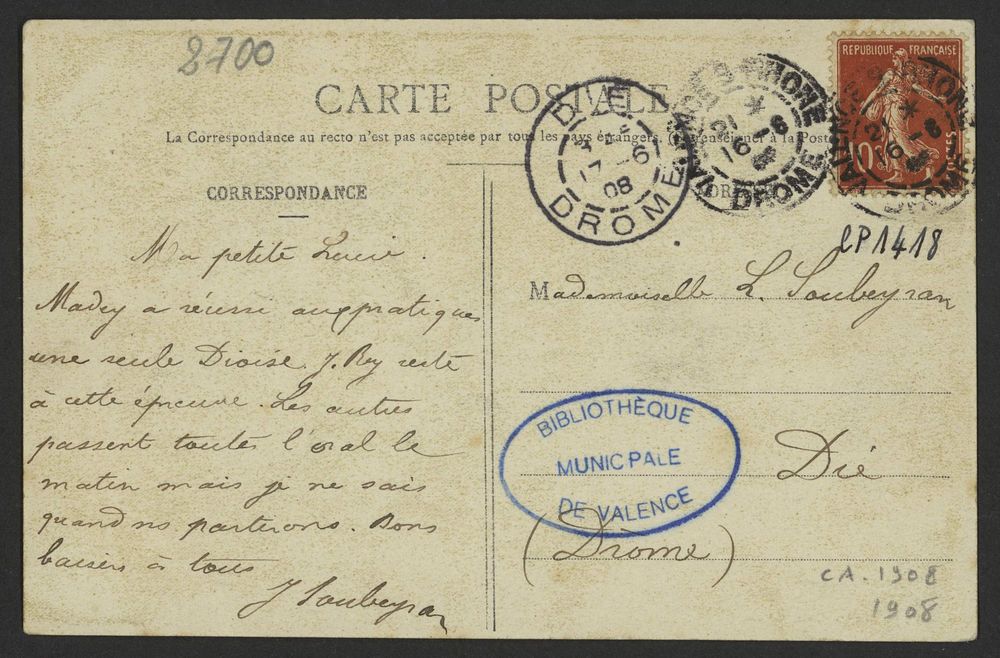 8700
CARTE POSTALE
La Correspondance au recto n'est pas acceptée par tous les pays étrangers. (Se renseigner à la Poste
CORRESPONDANCE
Ma petite Lucie.
Madey a réussi aux pratiques
une seule Dioise J. Rey reste
à cette épreuve. Les autres
passent toutes l'oral le
matin mais je ne sais
quand ns partirons. Bons
baisers à tous
J Soubeyran
DIE
17-6
08
DROME
VALENCE S RHONE
21 -6
16
DROME
REPUBLIQUE FRANÇAISE
10
POSTES
VALENCE S RHONE
21 -6
16
DROME
CP1418
Mademoiselle L. Soubeyran
BIBLIOTHÈQUE
MUNICPALE
DE VALENCE
Die
(Drôme)
CA. 1908
1908